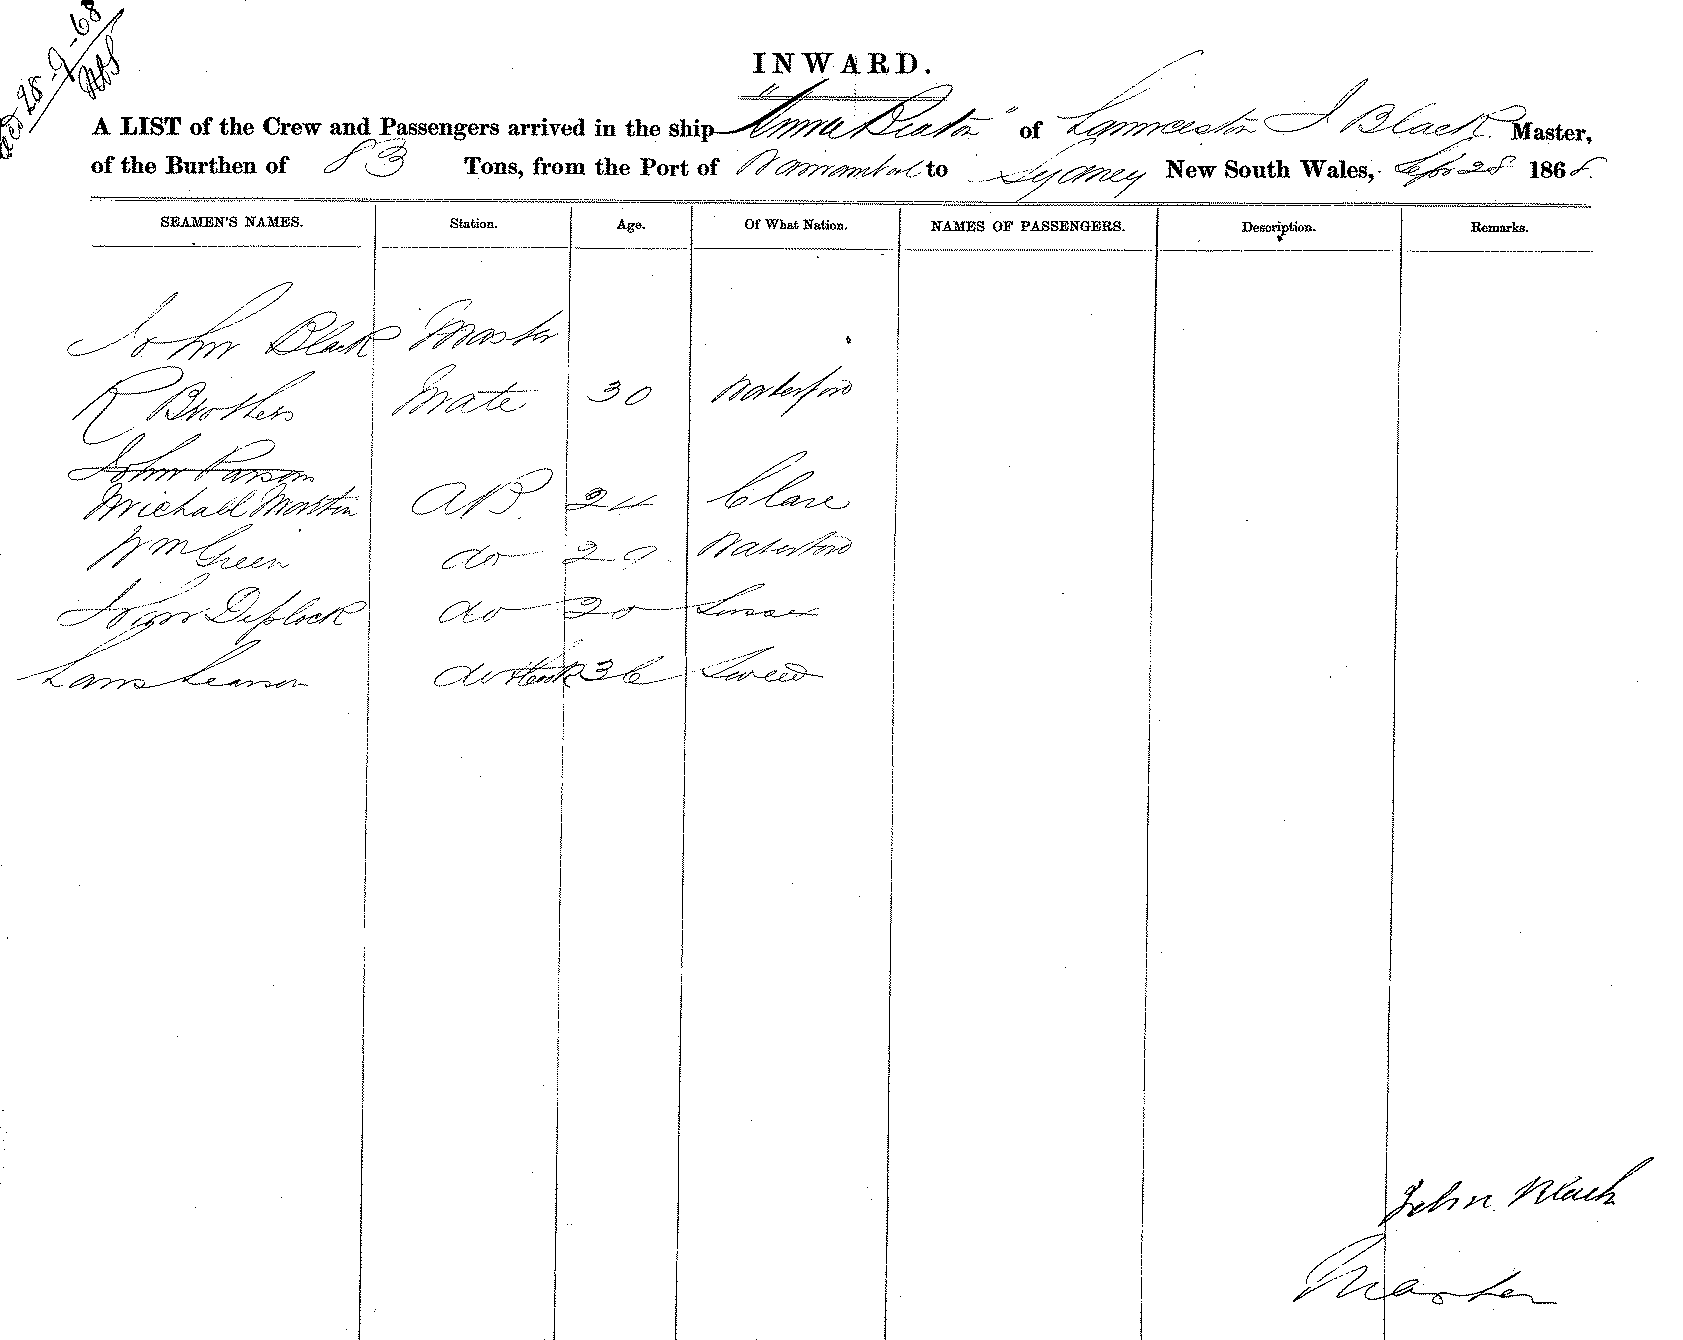 28-9-68
INWARD.
A LIST of the Crew and Passengers arrived in the ship "Annie Beaton" of Launceston J Black Master,
of the Burthen of 83 Tons, from the Port of Warnambol to Sydney New South Wales, Sep 28 1868.
SEAMEN'S NAMES. Station. Age. Of What Nation. NAMES OF PASSENGERS. Description. Remarks.
John Black Master
R Brothers Mate 30 Waterford
John Parson
Michael Martin AB. 24 Clare
Wm Green do Waterford
John Diplock do 20 Sussex
Lars Learson do Cook 36 Sweed
John Black
Master